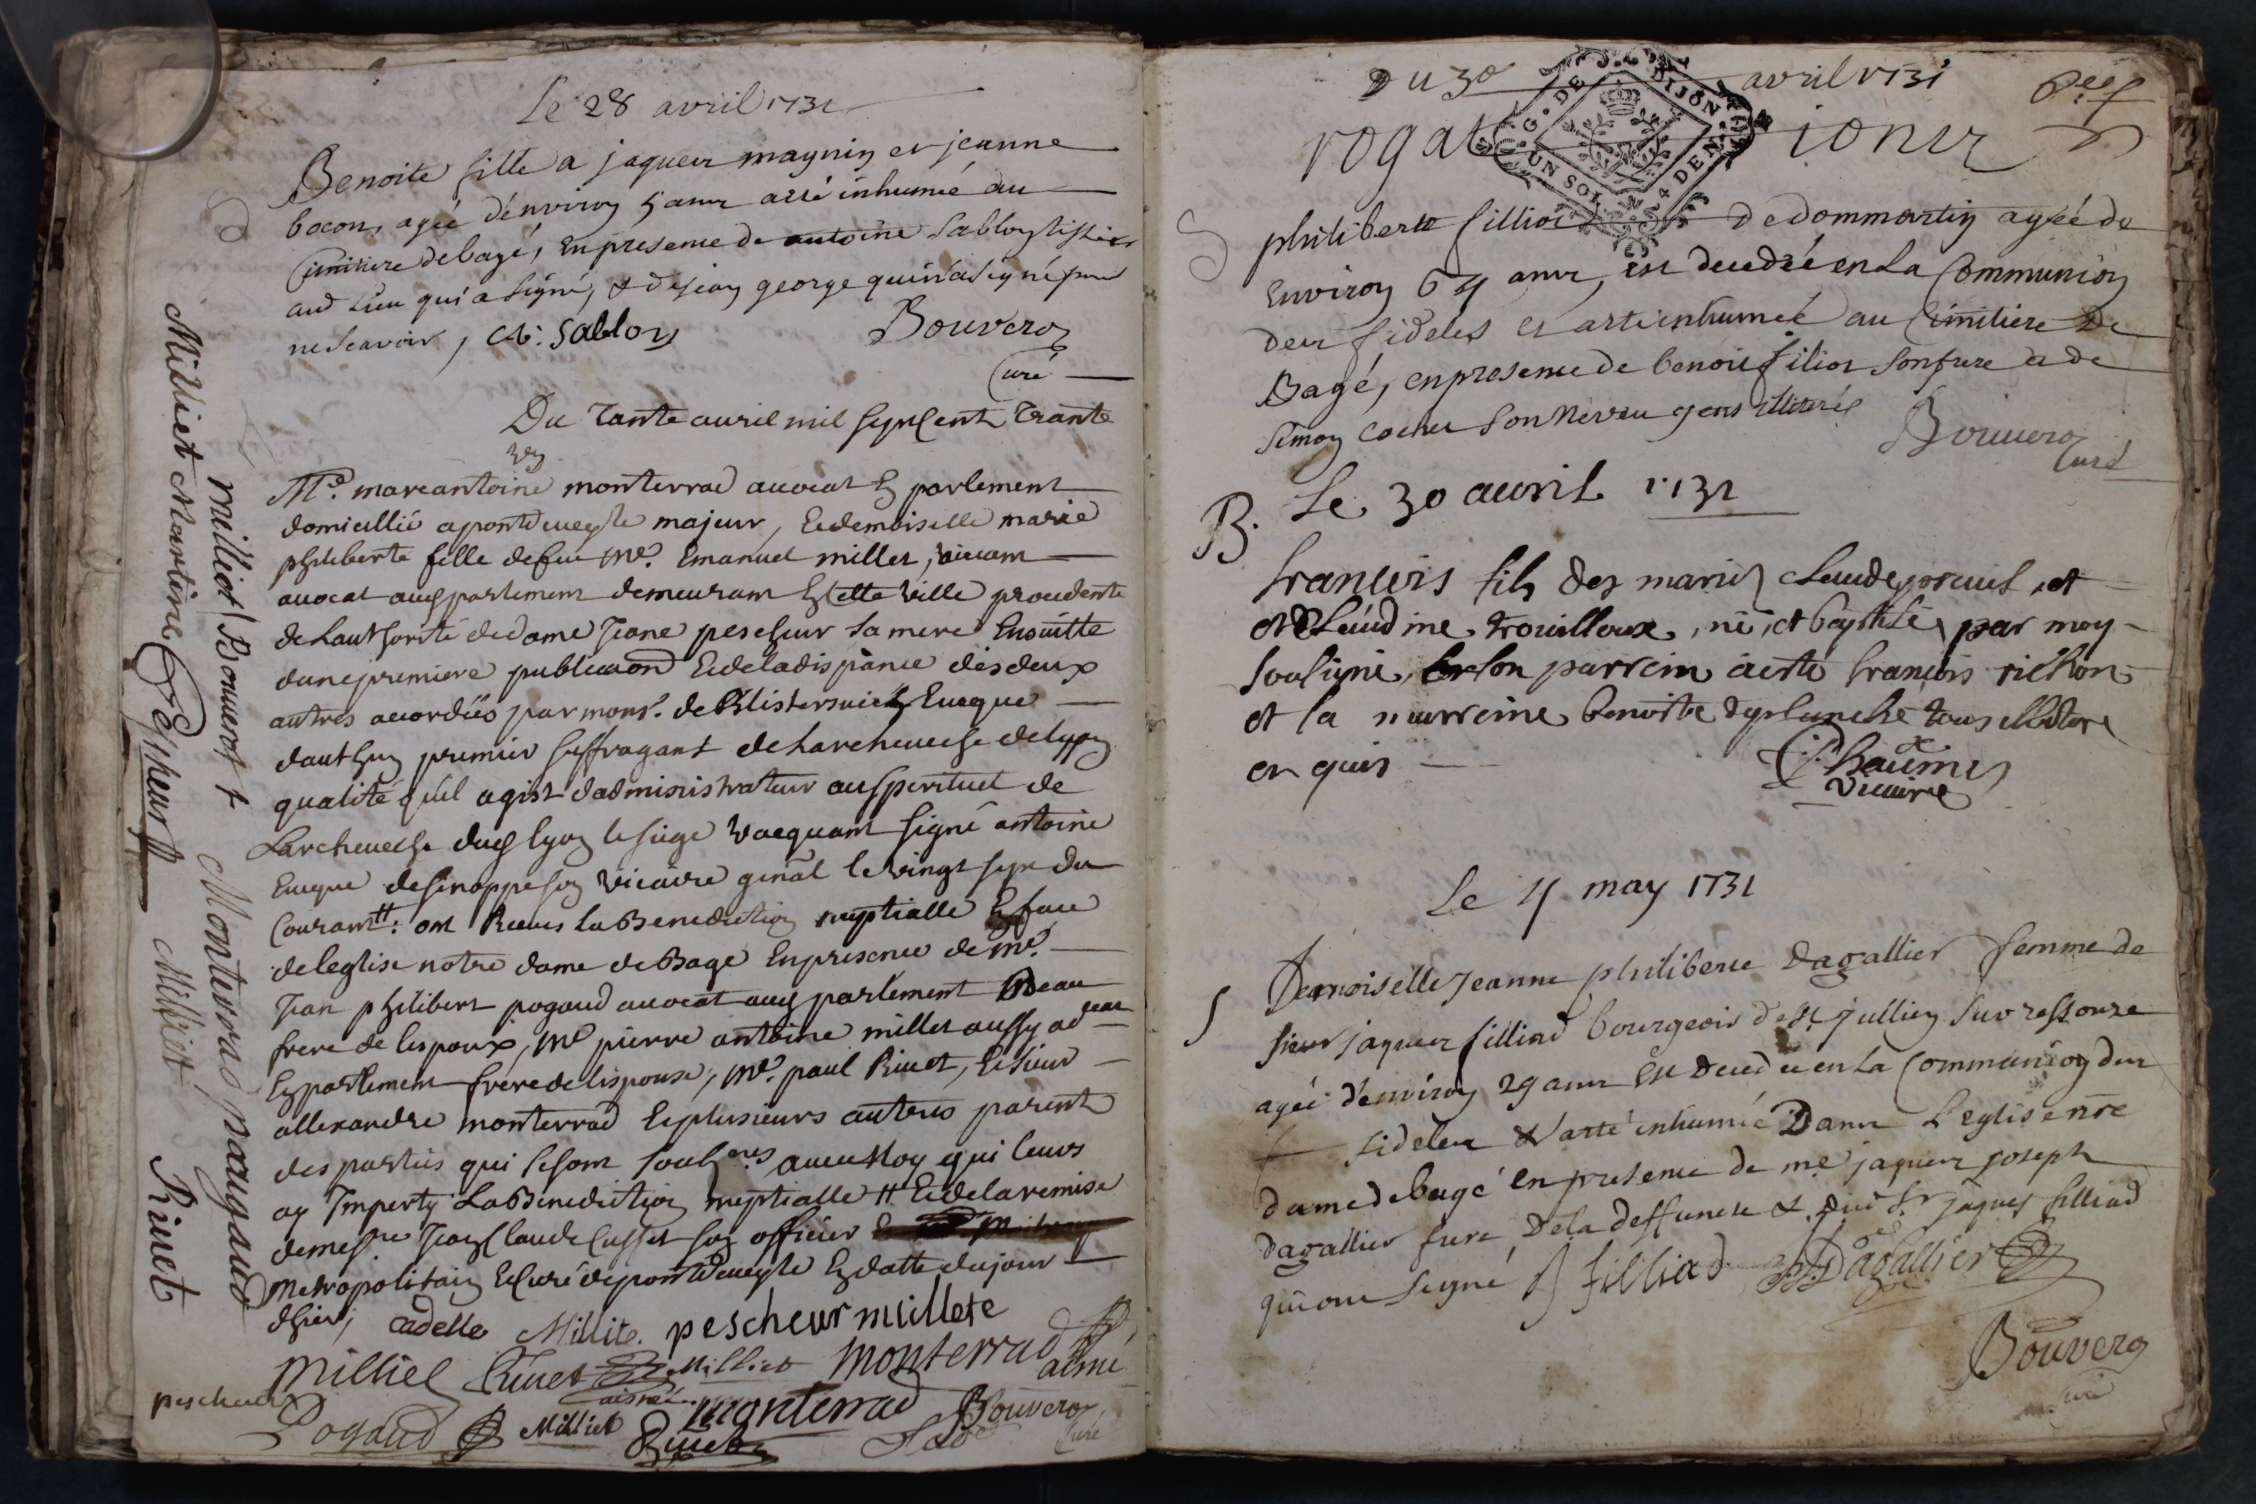 Le 28 avril 1731
Benoite fille a jaques maynin et jeanne
bocon, ageé dénviron 5 ans aeté inhumeé au
Cimitiere de bagé, en presence de antoine Sabloy
aud lieu qui a signé, & de jean george qui n'a signé pour
ne scavoir, At: Sabloy Bouveron
Curé
Du Tante auril mil sept Cent Trante
un
Me. marcantoine monterrad auocat En parlement
domicillié a pontdeueyle majeur, Et demoiselle marie
philiberte fille de feu Me. Emanuel millet, viuant
auocat aud parlement demeurant En Cette Ville procedente
de Lauthorité de dame Jane pescheur sa mere Ensuitte
dune premiere publication Et de la dispance des deux
autres accordées par monsr. de Eueque
dauthun premier suffragant de Larcheuesche de lyon
qualité qu'il agist dadministrateur au spirituel de
Larcheuesche dud lyon le siege Vacquant signé antoine
Eueque de sinoppe son Vicaire genal le Vingt sept du
Courant: ont Receus la Benediction nuptialle En face
de leglise notre dame de Bagé En presence de Me.
Jean philibert pogaud auocat aud parlement Beau
frere de lespoux, Me pierre antoine millet aussy aduocat
En parlement frere de lespouse, Me. paul Riuet, Et sieur
allexandre monterrad Et plusieurs autres parents
des parties qui se sont soubnés auec Moy qui leurs
ay Imparty La Benediction nuptialle Et de la remise
de messre Jean Claude Cusset son officier
metropolitain Et Curé de pontdeueyle En datte du jour
dhier, Cadelle Millite. pescheur millete
Milliet Riuet Milliet Monterrad aîné
pescheur aisné monterrad Bouveron
Pogaud Milliet Riuet Curé
Milliet Martine Pescheur Milliet Riuet
Milliot Bouverot Monterrad paugaud
Du 30 avril 1731
rogations
G. DE DIJON
UN SOL 4 DEN.
philiberte filliot de dommartin ageé de
Environ 64 ans, est decedeé en La Communion
des fideles et a eté inhumeé au Cimitiere De
Bagé, en presence de benoit filiot son frere et de
simon cochet son Neveu gens illiterés
Bouveron
Curé
B. Le 30 auril 1731
francois fils des mariés claude et
et Claudine trouilloux, né, et baptisé par moy
soussigné, son parrein a esté francois richon
et la marreine benoite desplanche tous illiteré
enquis Chaumes
Vicaire
Le 4 may 1731
S Demoiselle Jeanne philiberte Dagallier femme de
sieur jaques filliad bourgeois de St jullien sur ressouze
ageé d'environ 29 ans Est Decedeé en La Communion des
fideles & a eté inhumeé Dans L'eglise nre
dame de bagé en presence de me jaques joseph
dagallier frere Dela deffuncte & dud Sr jaques filliad
qui ont signé J filliad JJDagallier
Bouveron
curé